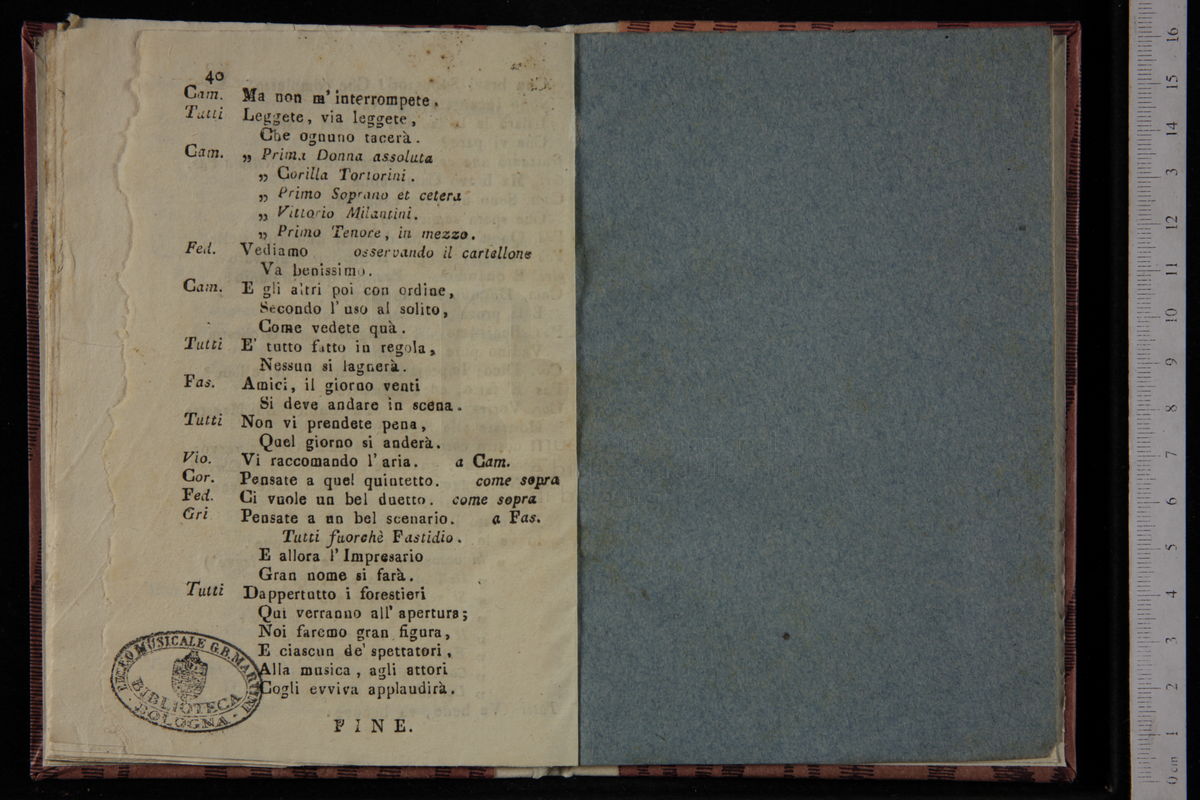 40
Cam. Ma non m' interrompete.
Tutti Leggete, via leggete,
Che ognuno tacerà.
Cam. „ Prima Donna assoluta
„ Corilla Tortorini.
„ Primo Soprano et cetera
„ Vittorio Milantini.
„ Primo Tenore, in mezzo.
Fed. Vediamo osservando il cartellone
Va benissimo.
Cam. E gli altri poi con ordine,
Secondo l' uso al solito,
Come vedete quà.
Tutti E' tutto fatto in regola,
Nessun si lagnerà.
Fas. Amici, il giorno venti
Si deve andare in scena.
Tutti Non vi prendete pena,
Quel giorno si anderà.
Vio. Vi raccomando l' aria. a Cam.
Cor. Pensate a quel quintetto. come sopra
Fed. Ci vuole un bel duetto. come sopra
Gri Pensate a un bel scenario. a Fas.
Tutti fuorchè Fastidio.
E allora l' Impresario
Gran nome si farà.
Tutti Dappertutto i forestieri
Qui verranno all' apertura;
Noi faremo gran figura,
E ciascun de' spettatori,
Alla musica, agli attori
Cogli evviva applaudirà.
FINE.
LICEO MUSICALE G.B. MARTINI
BIBLIOTECA
BOLOGNA
0 cm 1 2 3 4 5 6 7 8 9 10 11 12 3 14 15 16